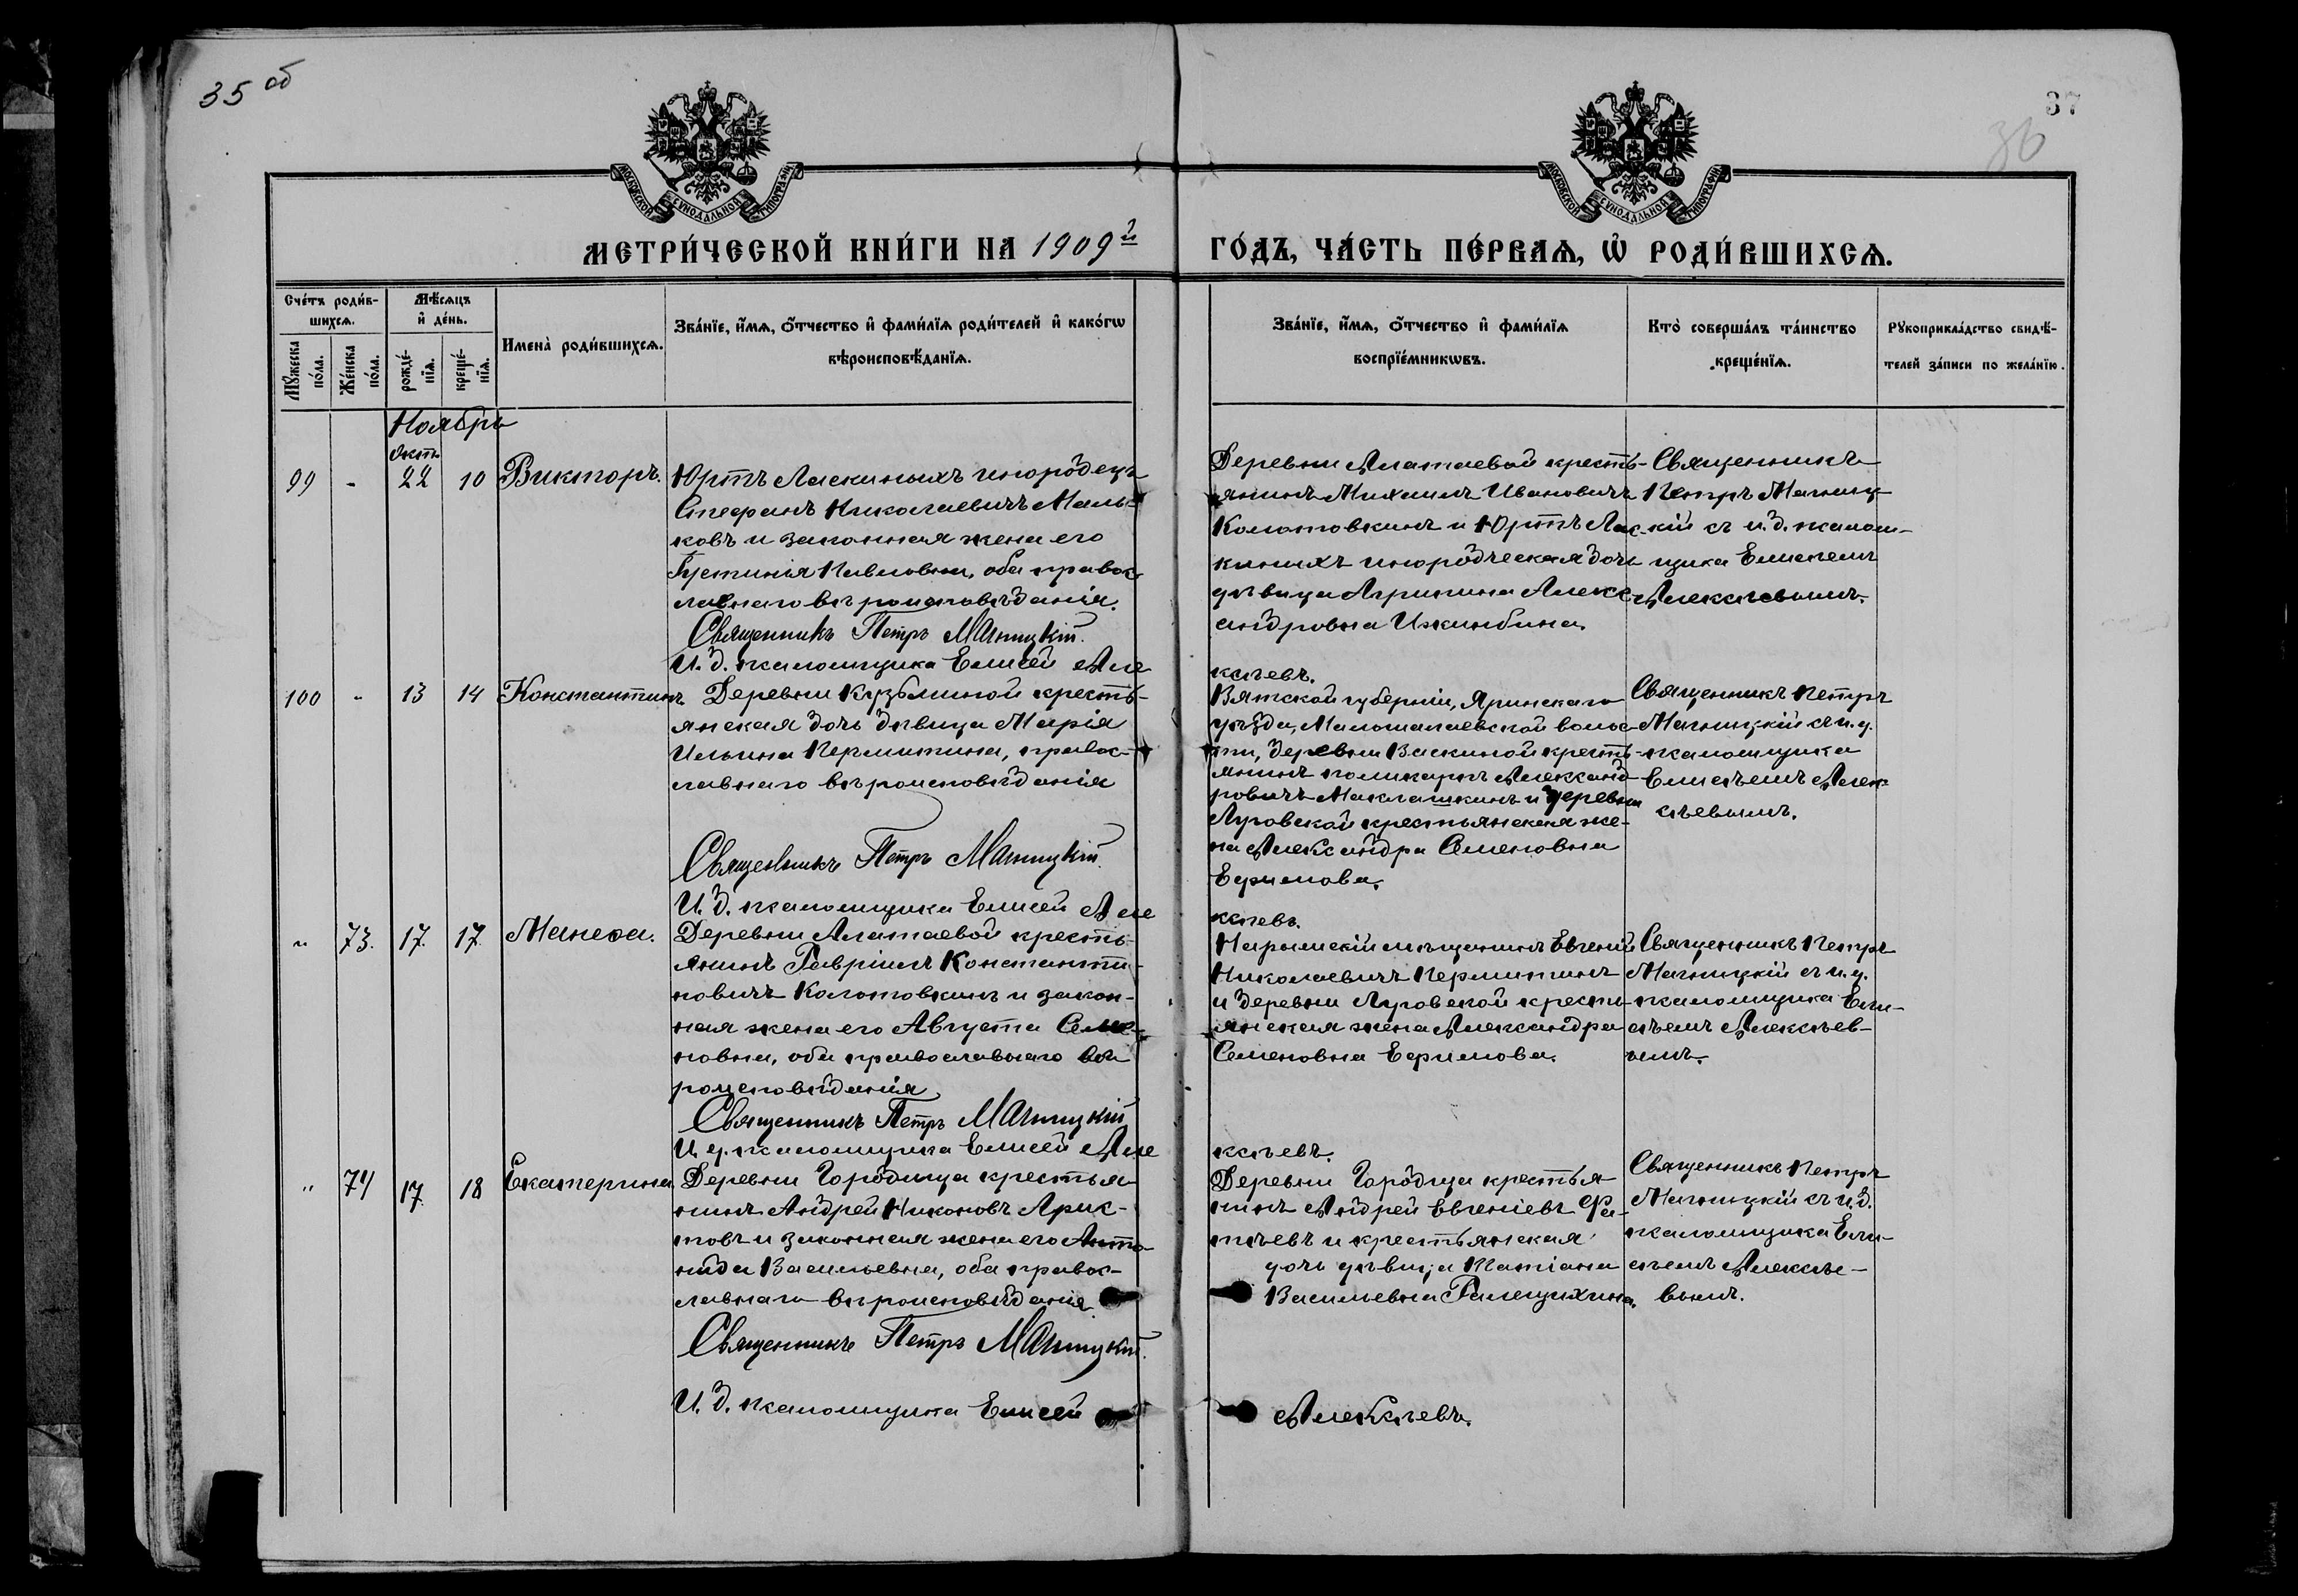 35 об
37
36
МОСКОВСКОЙ СѴНОДАЛЬНОЙ ТИПОГРАФІИ
МОСКОВСКОЙ СѴНОДАЛЬНОЙ ТИПОГРАФІИ
МЕТРИ́ЧЕСКОЙ КНИ́ГИ НА 1909й
ГО́ДЪ, ЧА́СТЬ ПЕ́РВАѦ, Ѡ҆ РОДИ́ВШИХСѦ.
Сче́тъ роди́в-
шихсѧ.
Мꙋ́жеска
по́ла.
Же́нска
по́ла.
Мѣ́сѧцъ
и҆ де́нь.
рожде́-
нїѧ.
креще́-
нїѧ.
Имена̀ роди́вшихсѧ.
Зва́нїе, и҆́мѧ, ѻ҆́тчество и҆ фами́лїѧ роди́телей и҆ како́гѡ
вѣроисповѣ́данїѧ.
Зва́нїе, и҆́мѧ, ѻ҆́тчество и҆ фами́лїѧ
воспрїе́мникѡвъ.
Кто̀ соверша́лъ та́инство
креще́нїѧ.
Рꙋкоприкла́дство свидѣ́-
телей за́писи по жела́нїю.
Ноябрь
Окт.
99 - 22 10 Викторъ.
Юртъ Ласкиныхъ инородецъ
Стефанъ Николаевичъ Маль-
ковъ и законная жена его
Іустинія Павловна, оба правос-
лавнаго вѣроисповѣданія.
Священникъ Петръ Магницкій.
И. д. псаломщика Елисей Але
ксѣевъ.
Деревни Алатаевой кресть-
янинъ Михаилъ Ивановичъ
Колотовкинъ и Юртъ Лас-
киныхъ инородческая дочь
дѣвица Агрипина Алекс-
андровна Ижинбина.
Священникъ
Петръ Магниц-
кій съ и. д. псалом-
щика Елисеемъ
Алексѣевымъ.
100 - 13 14 Константинъ
Деревни Кузьминой кресть-
янская дочь дѣвица Марія
Ильина Пермитина, правос-
лавнаго вѣроисповѣданія
Священникъ Петръ Магницкій.
И. д. псаломщика Елисей Але
ксѣевъ.
Вятской губерніи, Яринскаго
уѣзда, волос-
ти, деревни Васкиной кресть-
янинъ поликарпъ Александ-
ровичъ Маклашкинъ и деревни
Луговской крестьянская же-
на Александра Семеновна
Ефимова.
Священникъ Петръ
Магницкій съ и. д.
псаломщика
Елисѣемъ Алек-
сѣевымъ.
" 73. 17. 17. Манефа.
Деревни Алатаевой кресть-
янинъ Гавріилъ Константи-
новичъ Колотовкинъ и закон-
ная жена его Августа Семе-
новна, оба православнаго вѣ-
роисповѣданія
Священникъ Петръ Магницкій
И. д. псаломщика Елисей Але
ксѣевъ.
Нарымскій мѣщанинъ Евгеній
Николаевичъ Пермитинъ
и деревни Луговской кресть-
янская жена Александра
Семеновна Ефимова.
Священникъ Петръ
Магницкій съ и. д.
псаломщика Ели-
сѣемъ Алексѣев-
ымъ.
" 74 17. 18 Екатерина
Деревни Городища крестья-
нинъ Андрей Никоновъ Арис-
товъ и законная жена его Анто-
нида Васильевна, оба правос-
лавнаго вѣроисповѣданія
Священникъ Петръ Магницкій.
И. д. псаломщика Елисей
Алексѣевъ.
Деревни Городища крестья-
нинъ Андрей Евгеніевъ Фа-
тѣевъ и крестьянская
дочь дѣвица Татіана
Васильевна Галещихина.
Священникъ Петръ
Магницкій съ и. д.
псаломщика Ели-
сѣемъ Алексѣе-
вымъ.